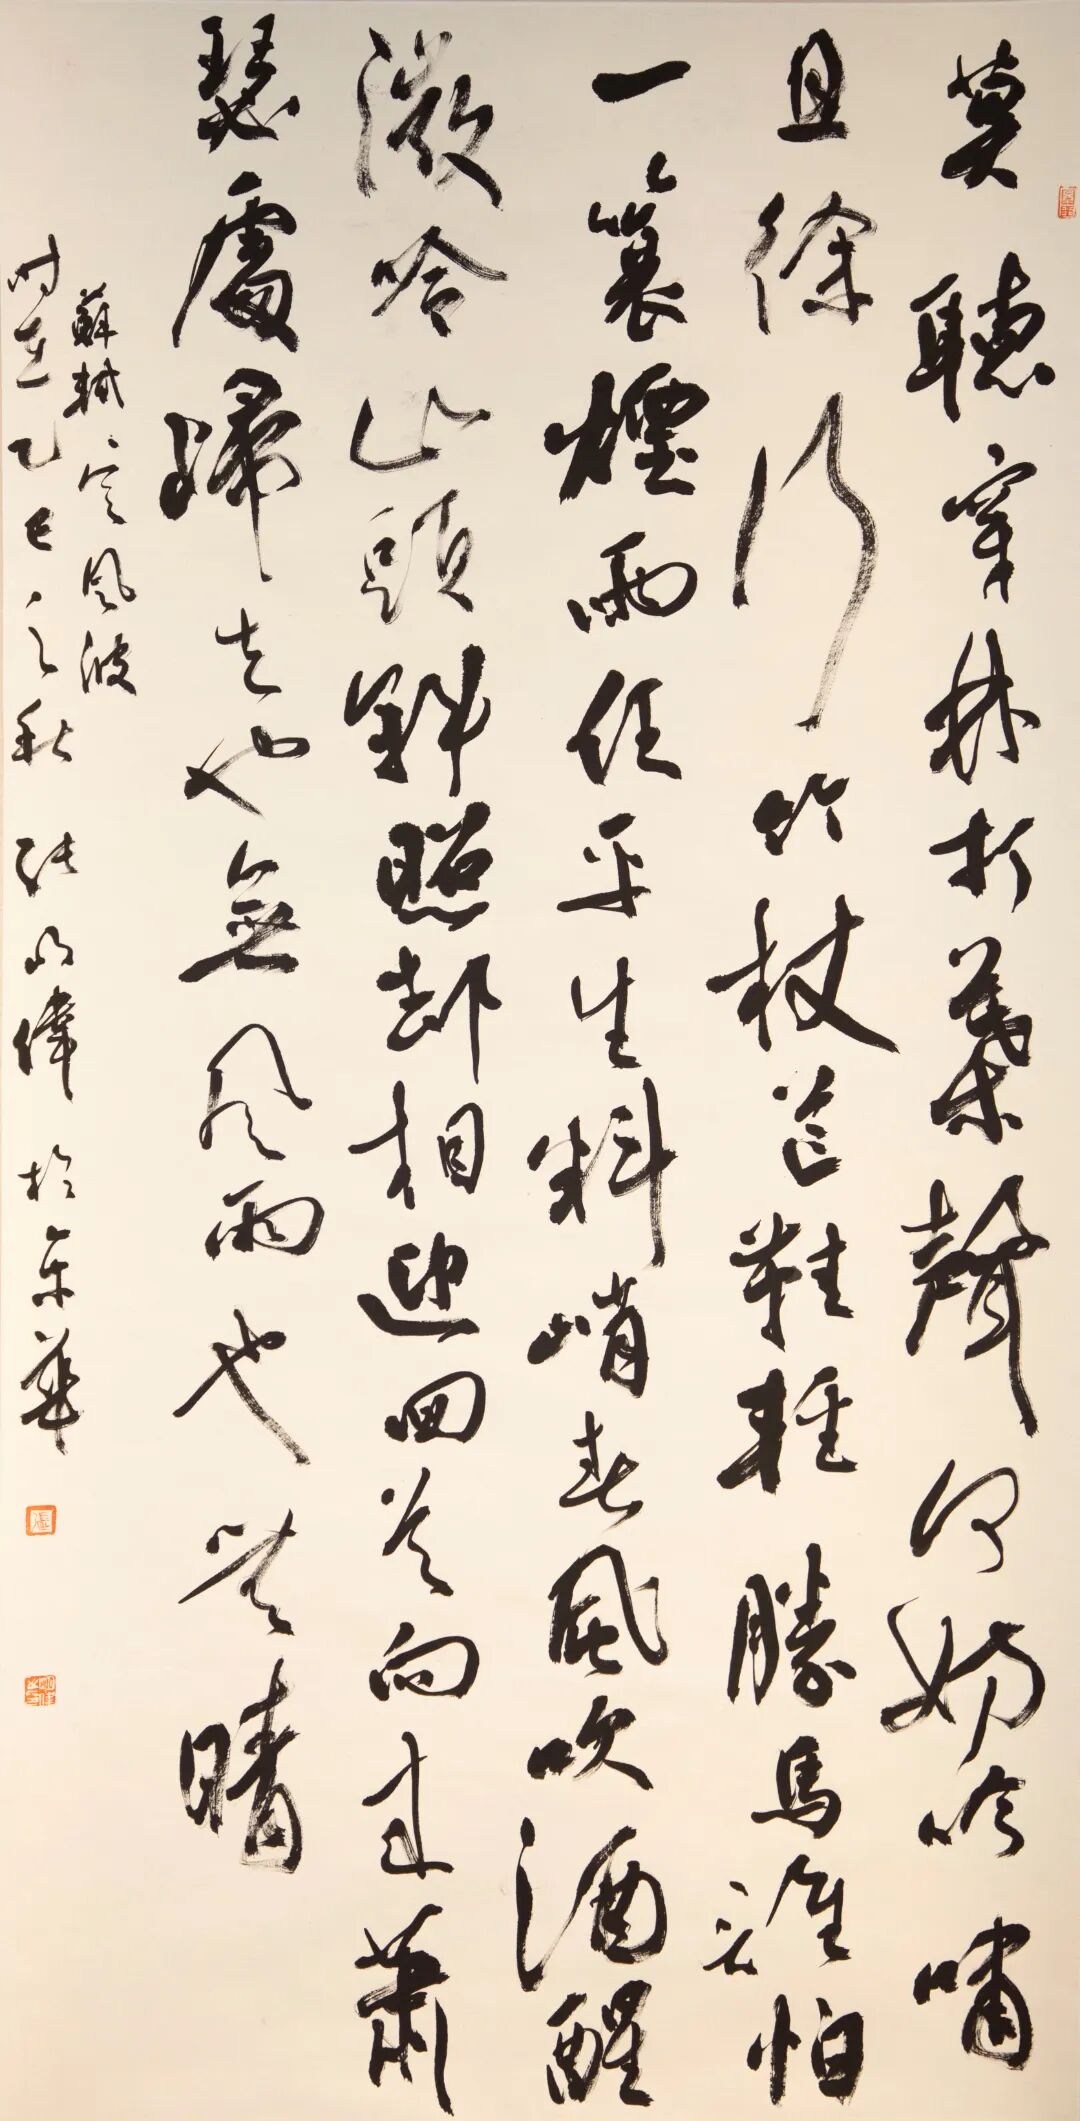 莫聽穿林打葉聲何妨吟嘯
且徐行竹杖芒鞋輕勝馬誰怕
一蓑煙雨任平生料峭春風吹酒醒
微冷山頭斜照却相迎回首向來蕭
瑟處歸去也無風雨也無晴
蘇軾定風波
時在乙巳之秋張偉於京華